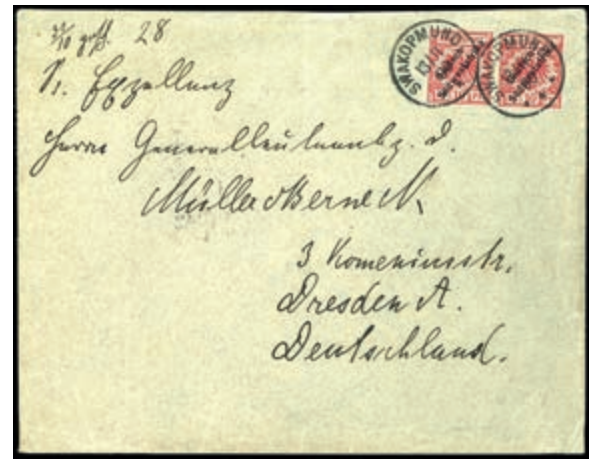 28
SWAKOPMUND SWAKOPMUND
Sr. Exzellenz
Herrn Generalleutnant z. D.
Müller v Berneck,
3 Komeniusstr.
Dresden A.
Deutschland.